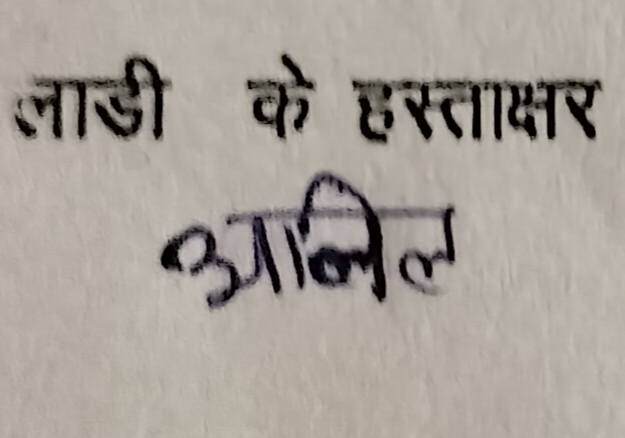 लाडी के हस्ताक्षर
अनिल